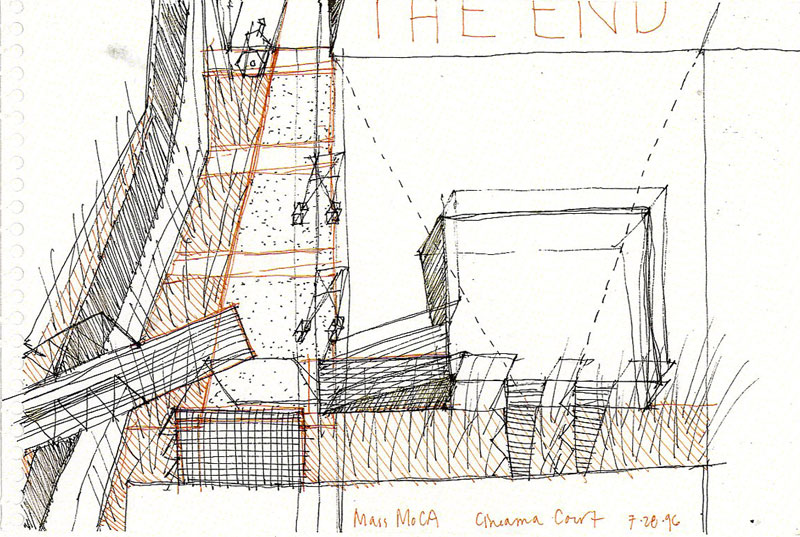 THE END
Mass MoCA Cineama Court 7·28·96